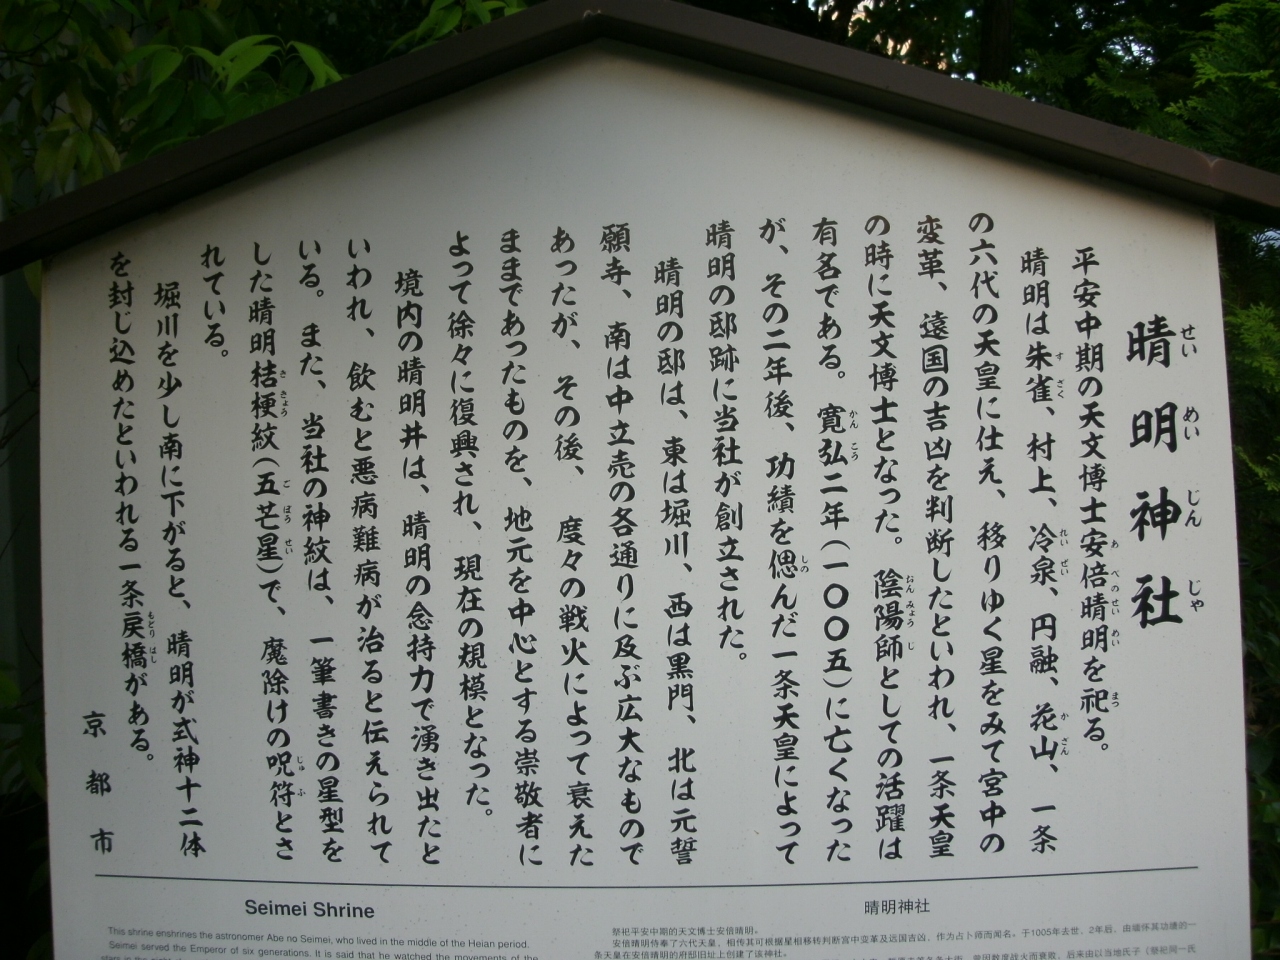 晴明神社
せいめいじんじゃ
平安中期の天文博士安倍晴明を祀る。
あべのせいめい
まつ
晴明は朱雀、村上、冷泉、円融、花山、一条
すざく
れいぜい
かざん
の六代の天皇に仕え、移りゆく星をみて宮中の
変革、遠国の吉凶を判断したといわれ、一条天皇
の時に天文博士となった。陰陽師としての活躍は
おんみょうじ
有名である。寛弘二年(一〇〇五)に亡くなった
かんこう
が、その二年後、功績を偲んだ一条天皇によって
しの
晴明の邸跡に当社が創立された。
晴明の邸は、東は堀川、西は黒門、北は元誓
願寺、南は中立売の各通りに及ぶ広大なもので
あったが、その後、度々の戦火によって衰えた
ままであったものを、地元を中心とする崇敬者に
よって徐々に復興され、現在の規模となった。
境内の晴明井は、晴明の念持力で湧き出たと
いわれ、飲むと悪病難病が治ると伝えられて
いる。また、当社の神紋は、一筆書きの星型を
した晴明桔梗紋(五芒星)で、魔除けの呪符とさ
ききょう
ごぼうせい
じゅふ
れている。
堀川を少し南に下がると、晴明が式神十二体
を封じ込めたといわれる一条戻橋がある。
もどりばし
京都市
Seimei Shrine
This shrine enshrines the astronomer Abe no Seimei, who lived in the middle of the Heian period.
Seimei served the Emperor of six generations. It is said that he watched the movements of the
晴明神社
祭祀平安中期的天文博士安倍晴明。
安倍晴明侍奉了六代天皇，相传其可根据星相移转判断宫中变革及远国吉凶，作为占卜师而闻名。于1005年去世，2年后，由缅怀其功绩的一
条天皇在安倍晴明的府邸旧址上创建了该神社。